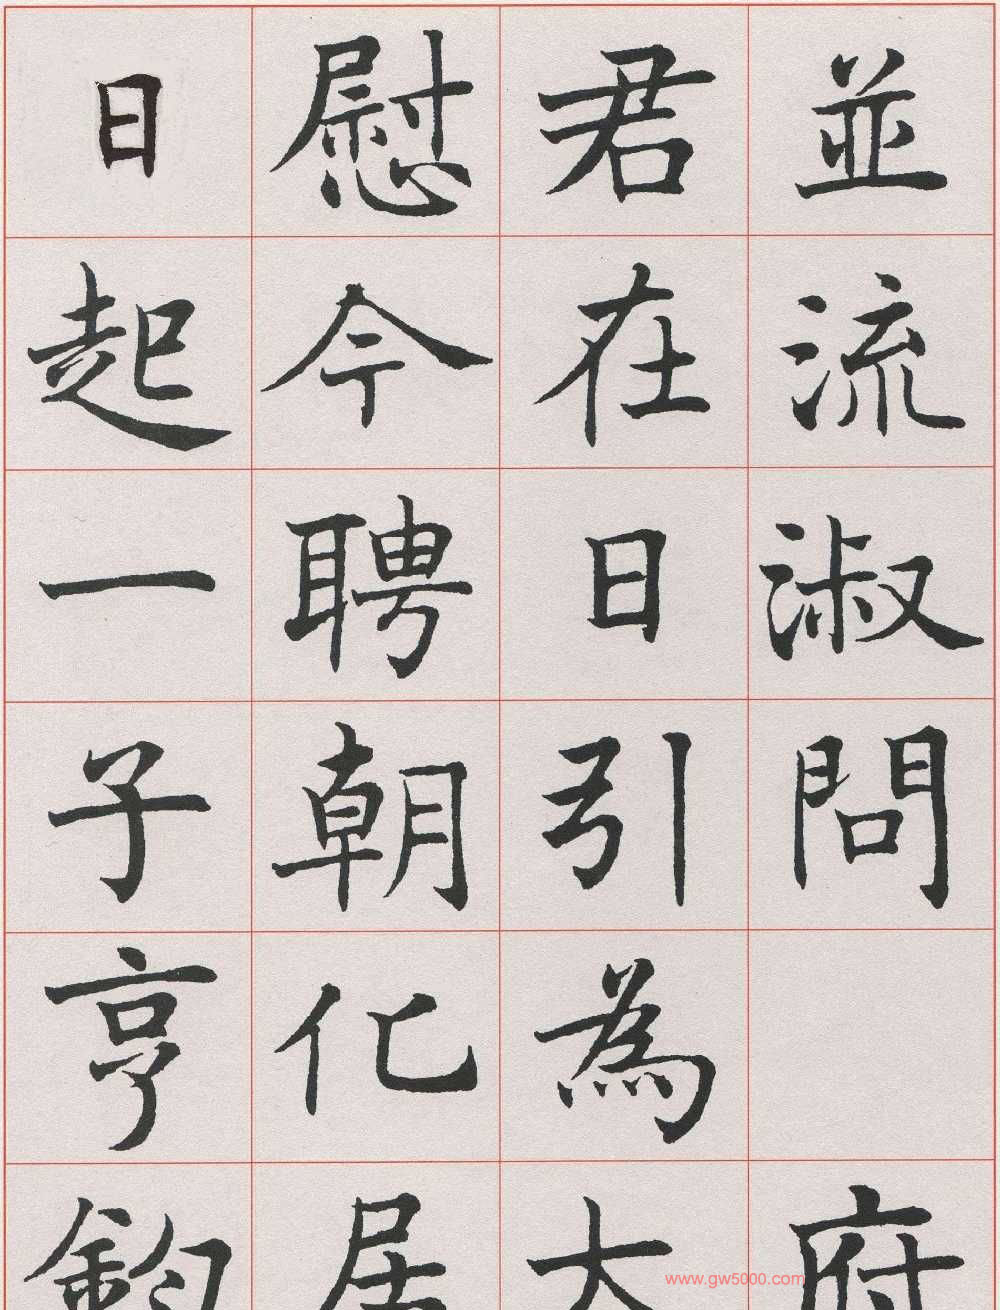 並流淑問 府
君在日引為大
慰今聘朝化居
日起一子亨鈞
www.gw5000.com